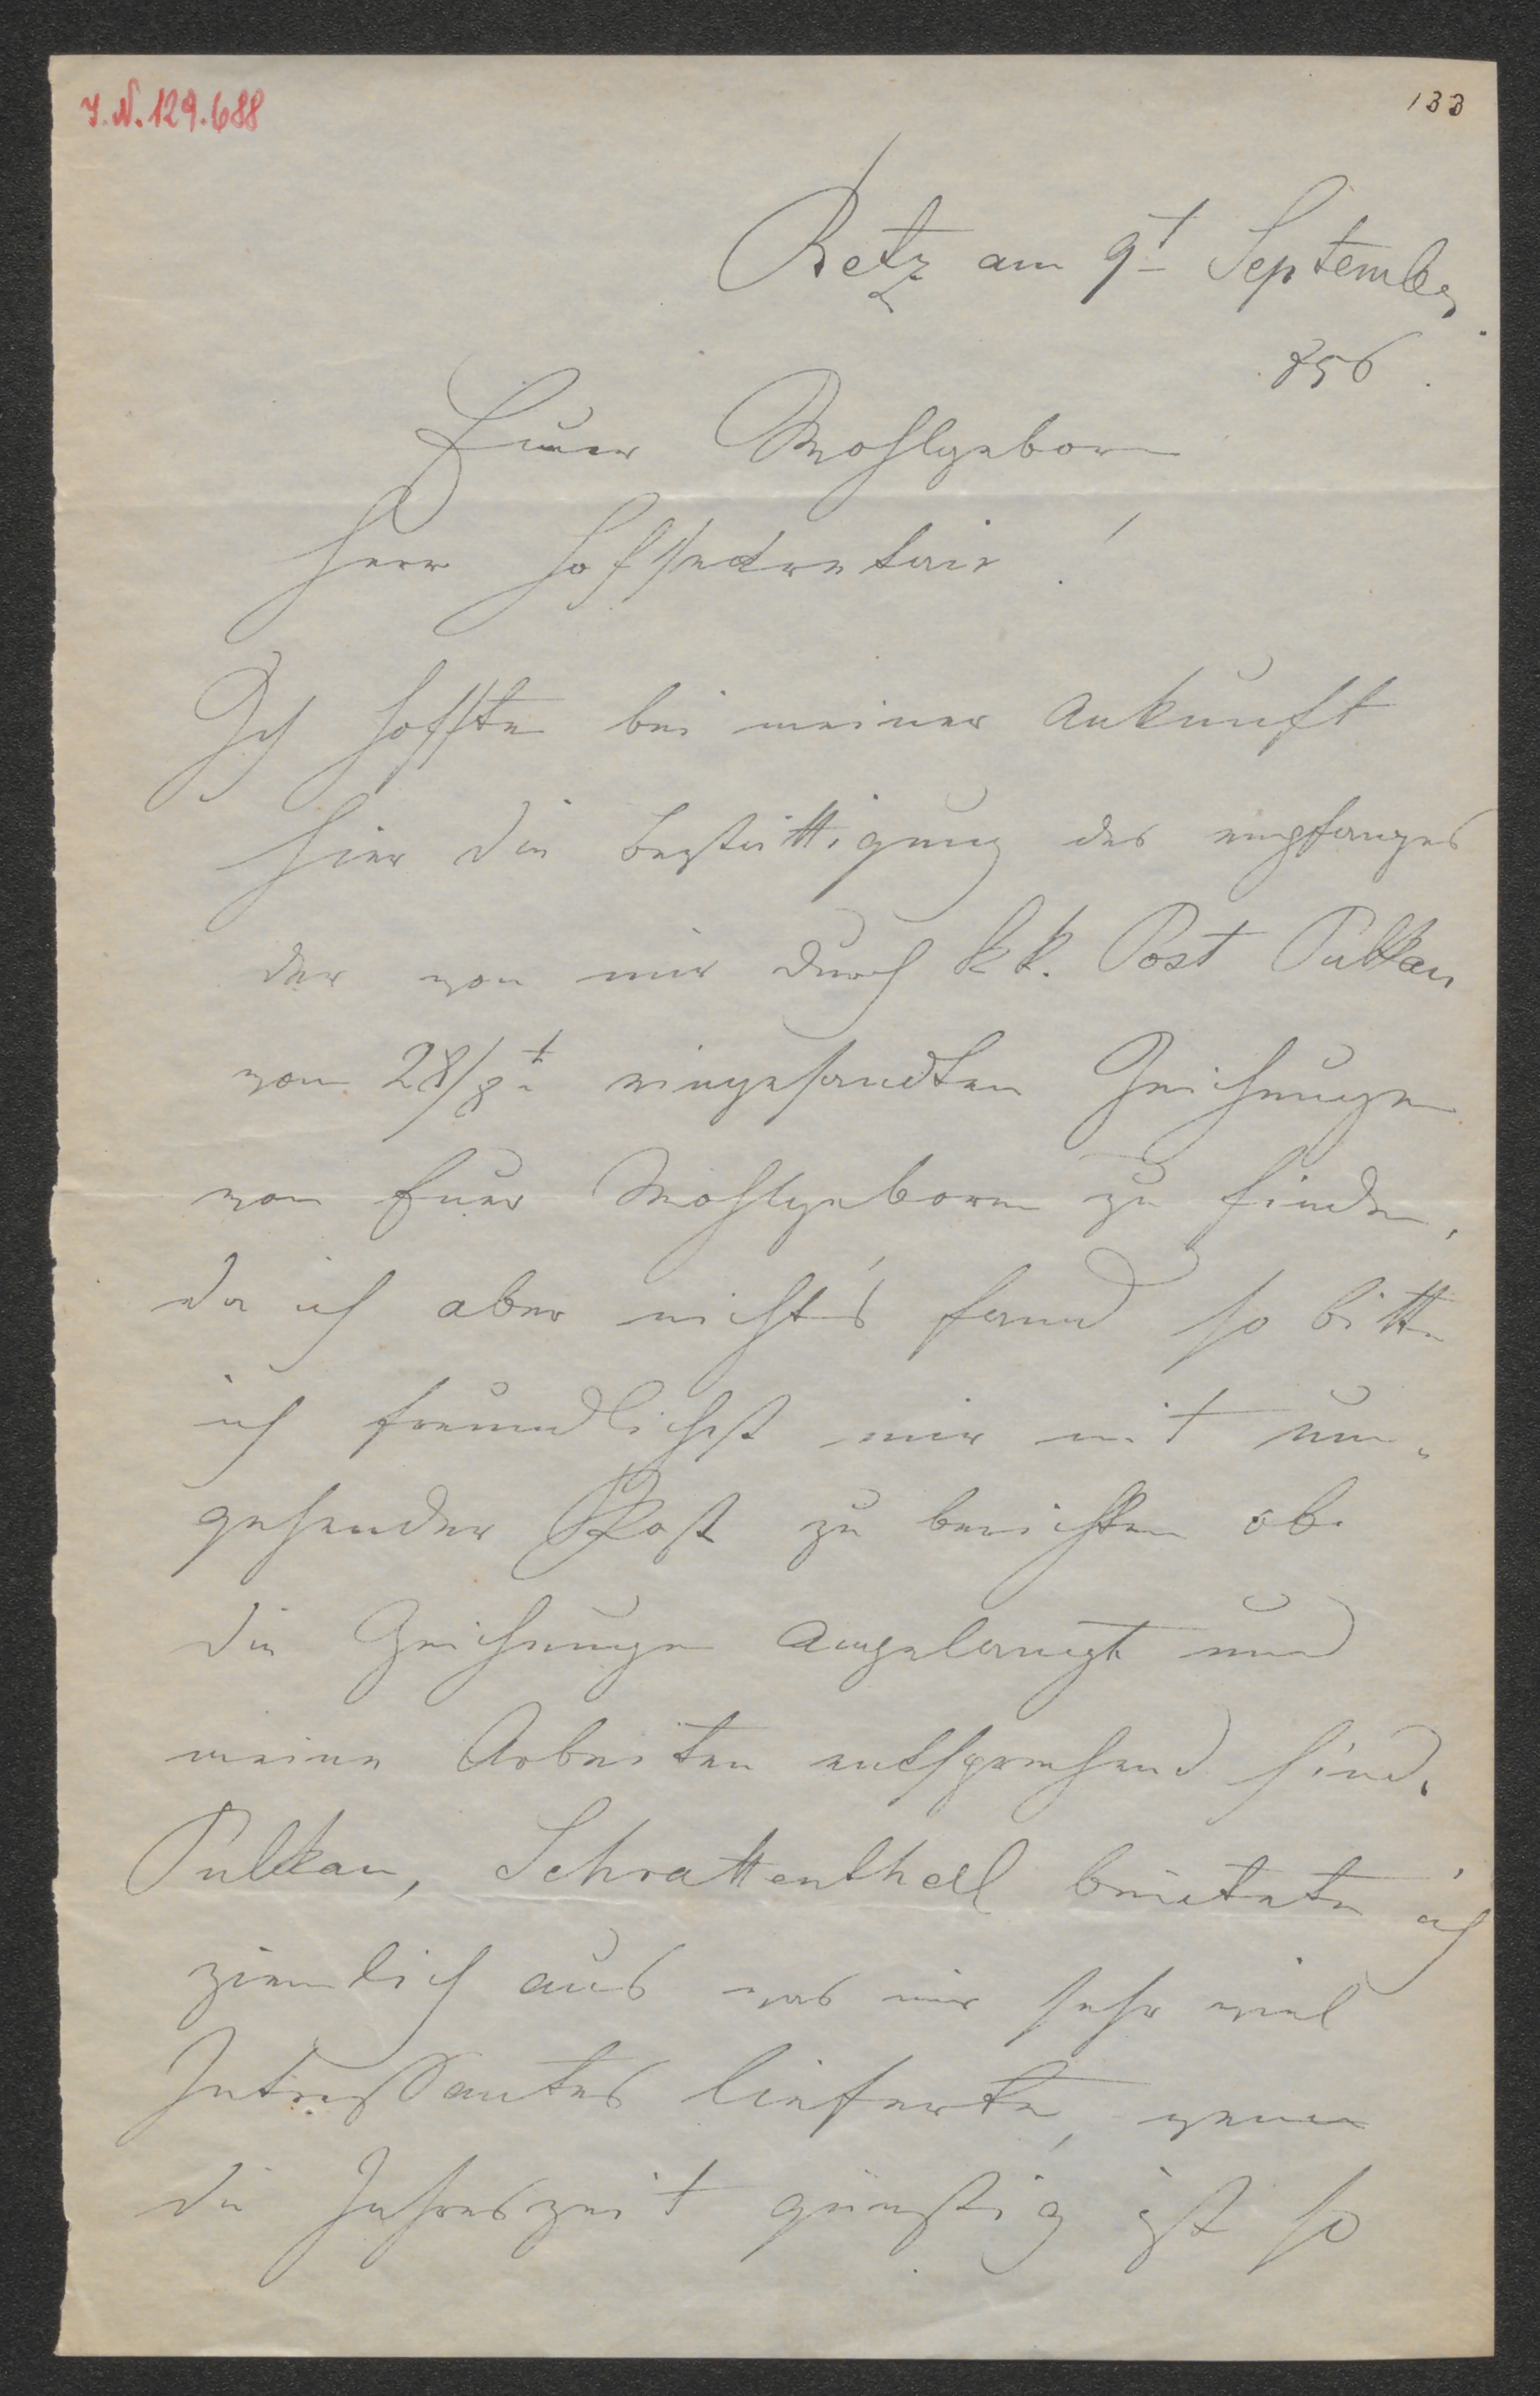 I. N. 129.688
133
Retz am 9t September
856.
Euer Wohlgeborn
Herr Hofsekretair!
Ich hoffte bei meiner Ankunft
hier die Bestättigung des empfanges
der von mir durch k k. Post Pulkau
vom 28/8t eingesandten Zeichnungen
von Euer Wohlgeboren zu finden,
da ich aber nichts fand so bitte
ich freundlichst mir mit um-
gehender Post zu berichten ob
die Zeichnungen angelangt und
meine Arbeiten entsprechend sind.
Pulkau, Schrattenthall beutete ich
ziemlich aus was mir sehr viel
Intressantes lieferte, wenn
die Jahreszeit günstig ist so